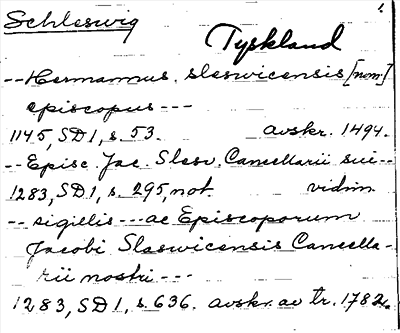 Schleswig
Tyskland
-- Hermannus. sleswicensis [nom]
episcopus ---
1145, SD1, s. 53. avskr. 1494.
-- Episc. Jac. Slesv. Cancellarii sui --
1283, SD1, s. 295, not. vidim.
-- sigillis --- ac Episcoporum
Jacobi Slaswicensis Cancella-
rii nostri ---
1283, SD1, s. 636. avskr. av tr. 1782.